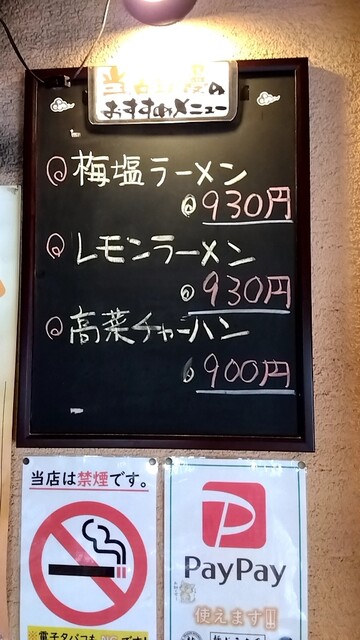 当店自慢の
おすすめメニュー
梅塩ラーメン
930円
レモンラーメン
930円
高菜チャーハン
900円
当店は禁煙です。
PayPay
使えます!!